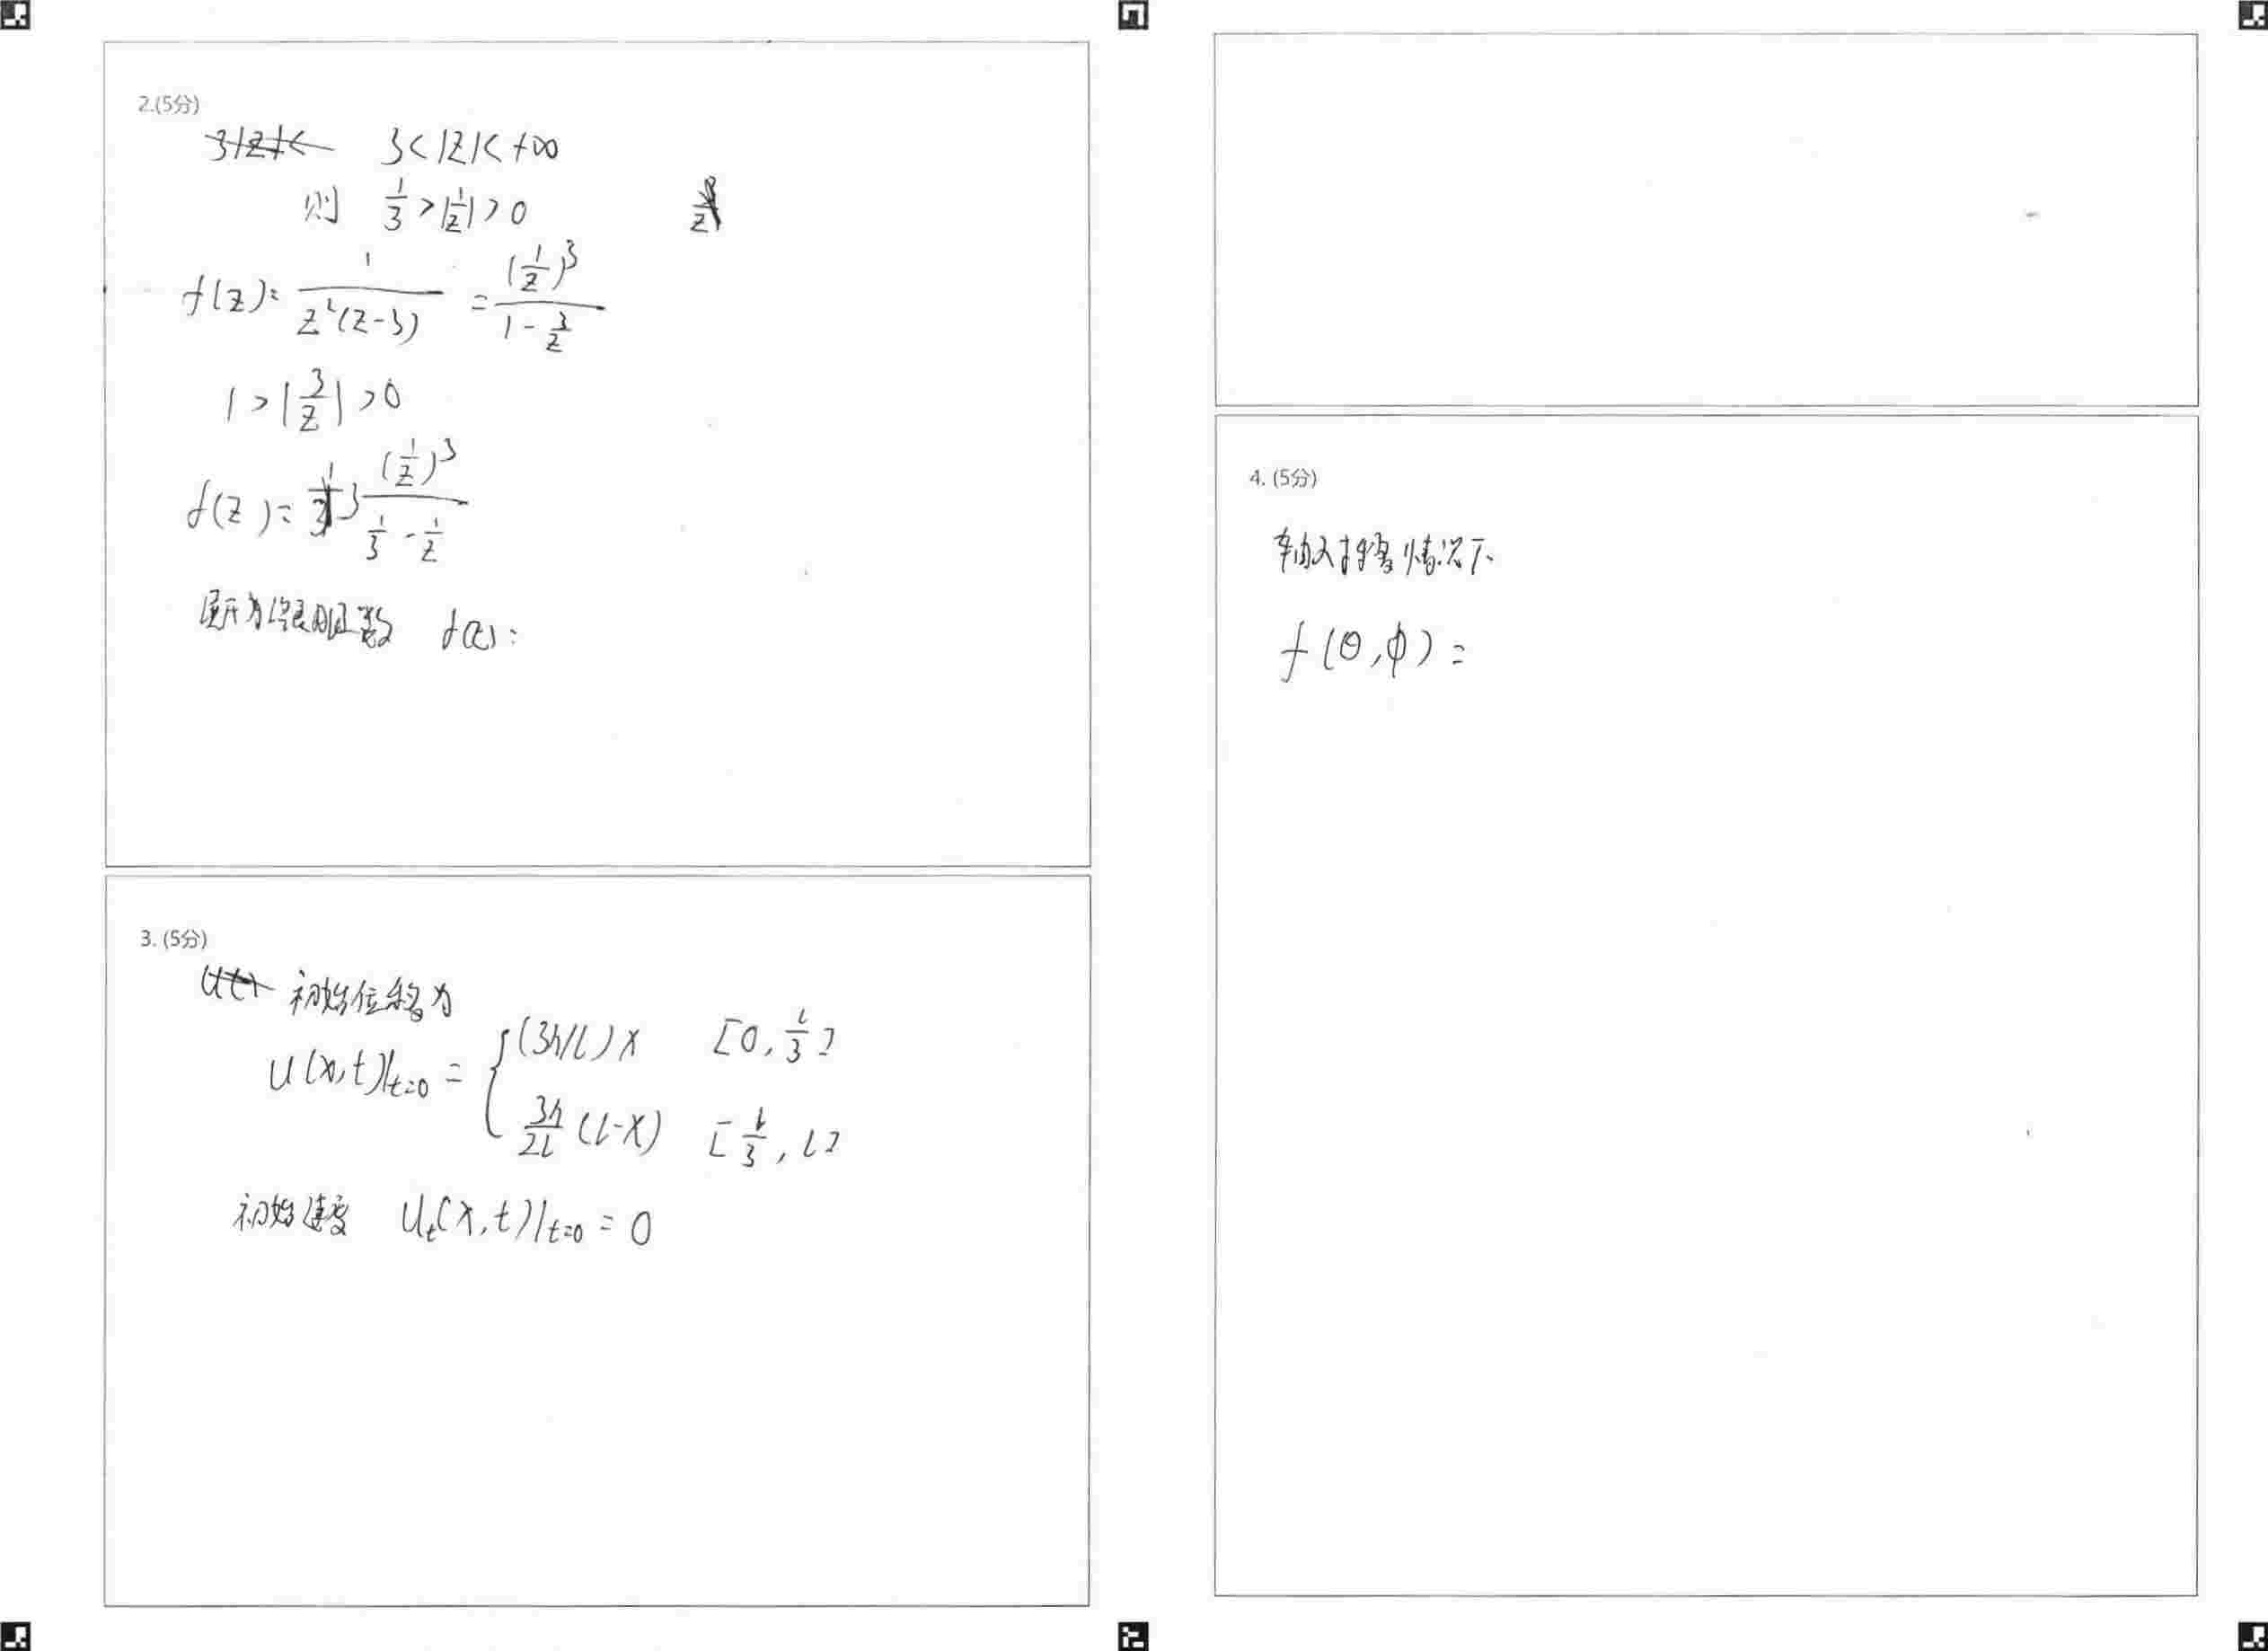 2.(5分)
3<|z|<+∞
则 1/3>|1/z|>0
f(z)= 1/(z²(z-3)) = (1/z)³/(1-3/z)
1>|3/z|>0
f(z)= 1/3 (1/z)³/(1/3-1/z)
展开为洛朗级数 f(z):
3. (5分)
初始位移为
u(x,t)|t=0 = { (3h/l)x [0, l/3]
3h/2l (l-x) [l/3, l]
初始速度 ut(x,t)|t=0 = 0
4. (5分)
轴对称情况下
f(θ,φ)=